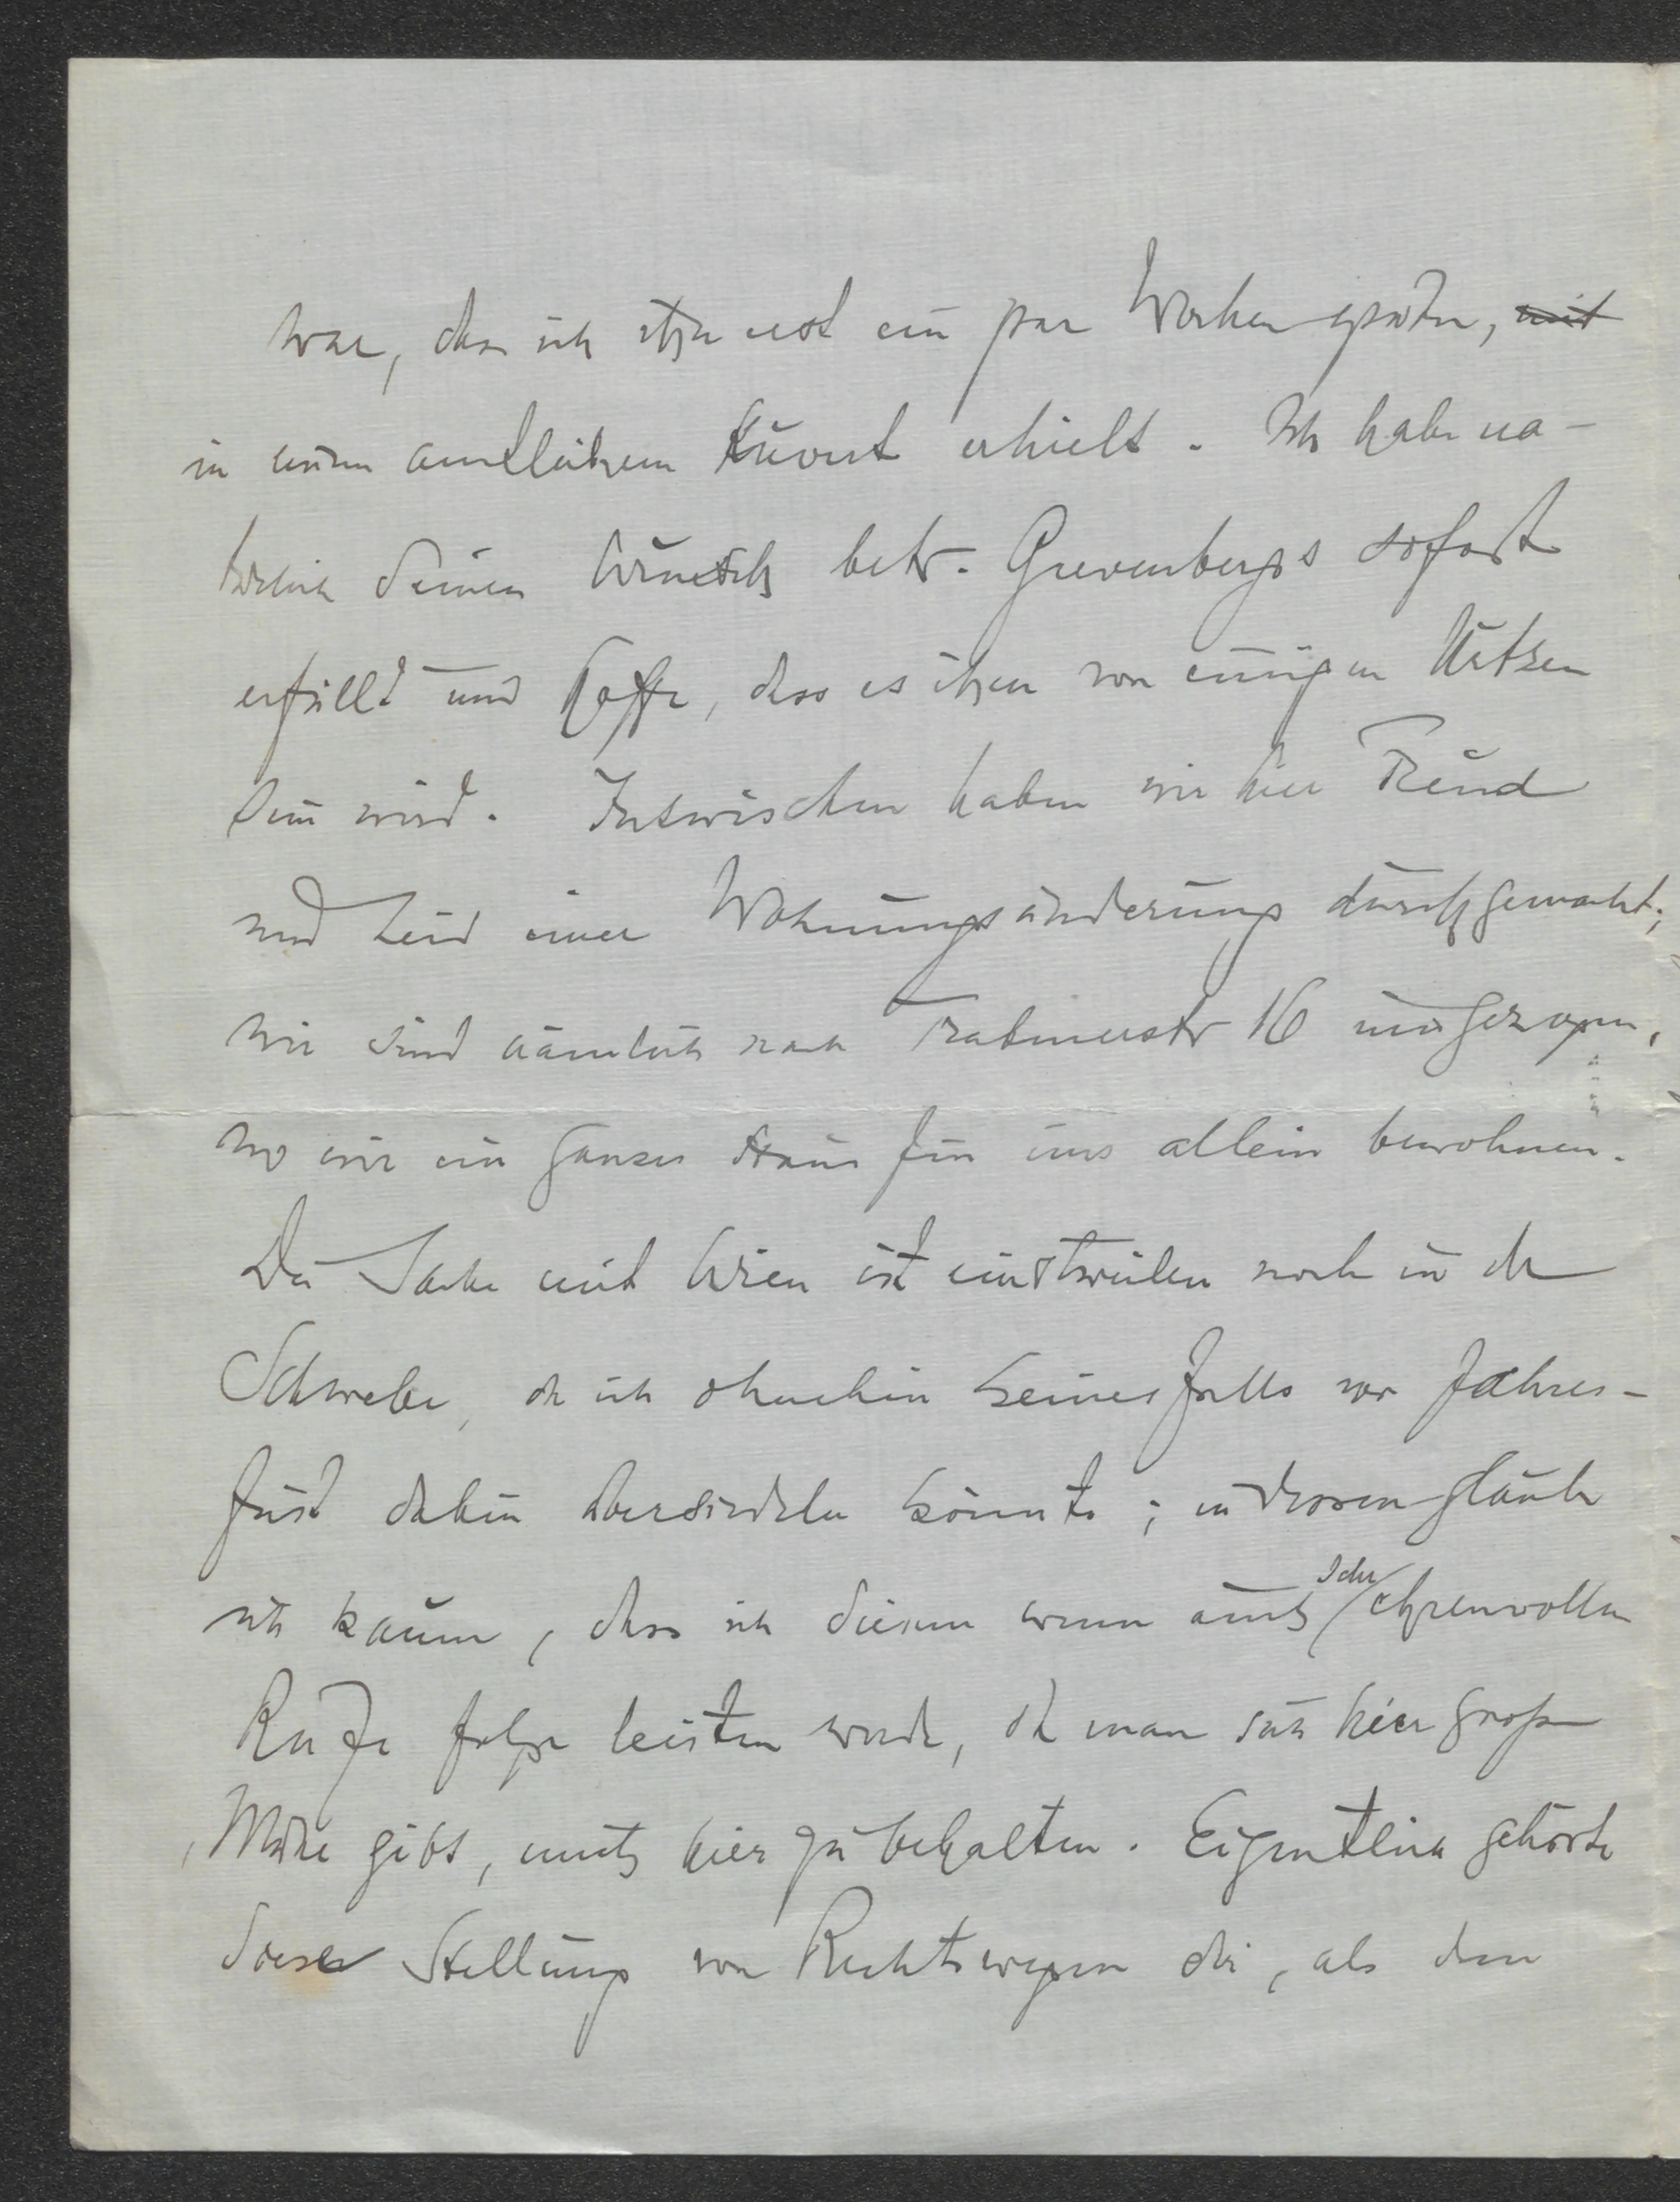 war, dass ich ihn erst ein paar Wochen später, mit
in einem amtlichem Kuvert erhielt. Ich habe na-
türlich Deinen Wunsch betr. Grevenbergs sofort
erfüllt und hoffe, dass es ihnen von einigem Nutzen
sein wird. Intwischen haben wir hier Freud
und Leid einer Wohnungsänderung durchgemacht;
wir sind nämlich nach 16 umgezogen,
wo wir ein ganzes Haus für uns allein bewohnen.
Die Sache mit Wien ist einstweilen noch in der
Schwebe, da ich ohnehin keinesfalls vor Jahres-
frist dahin übersiedeln könnte; indessen glaube
ich kaum, dass ich diesem wenn auch sehr ehrenvollen
Rufe folge leisten werde, da man sich hier große
Mühe gibt, mich hier zu behalten. Eigentlich gehörte
diese Stellung von Rechtswegen dir, als dem